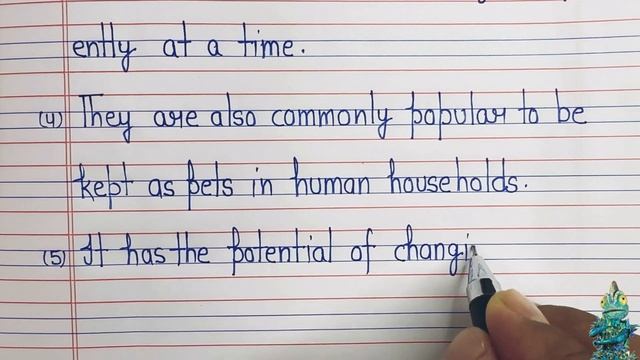 ently at a time.
(4) They are also commonly popular to be
kept as pets in human households.
(5) It has the potential of changi